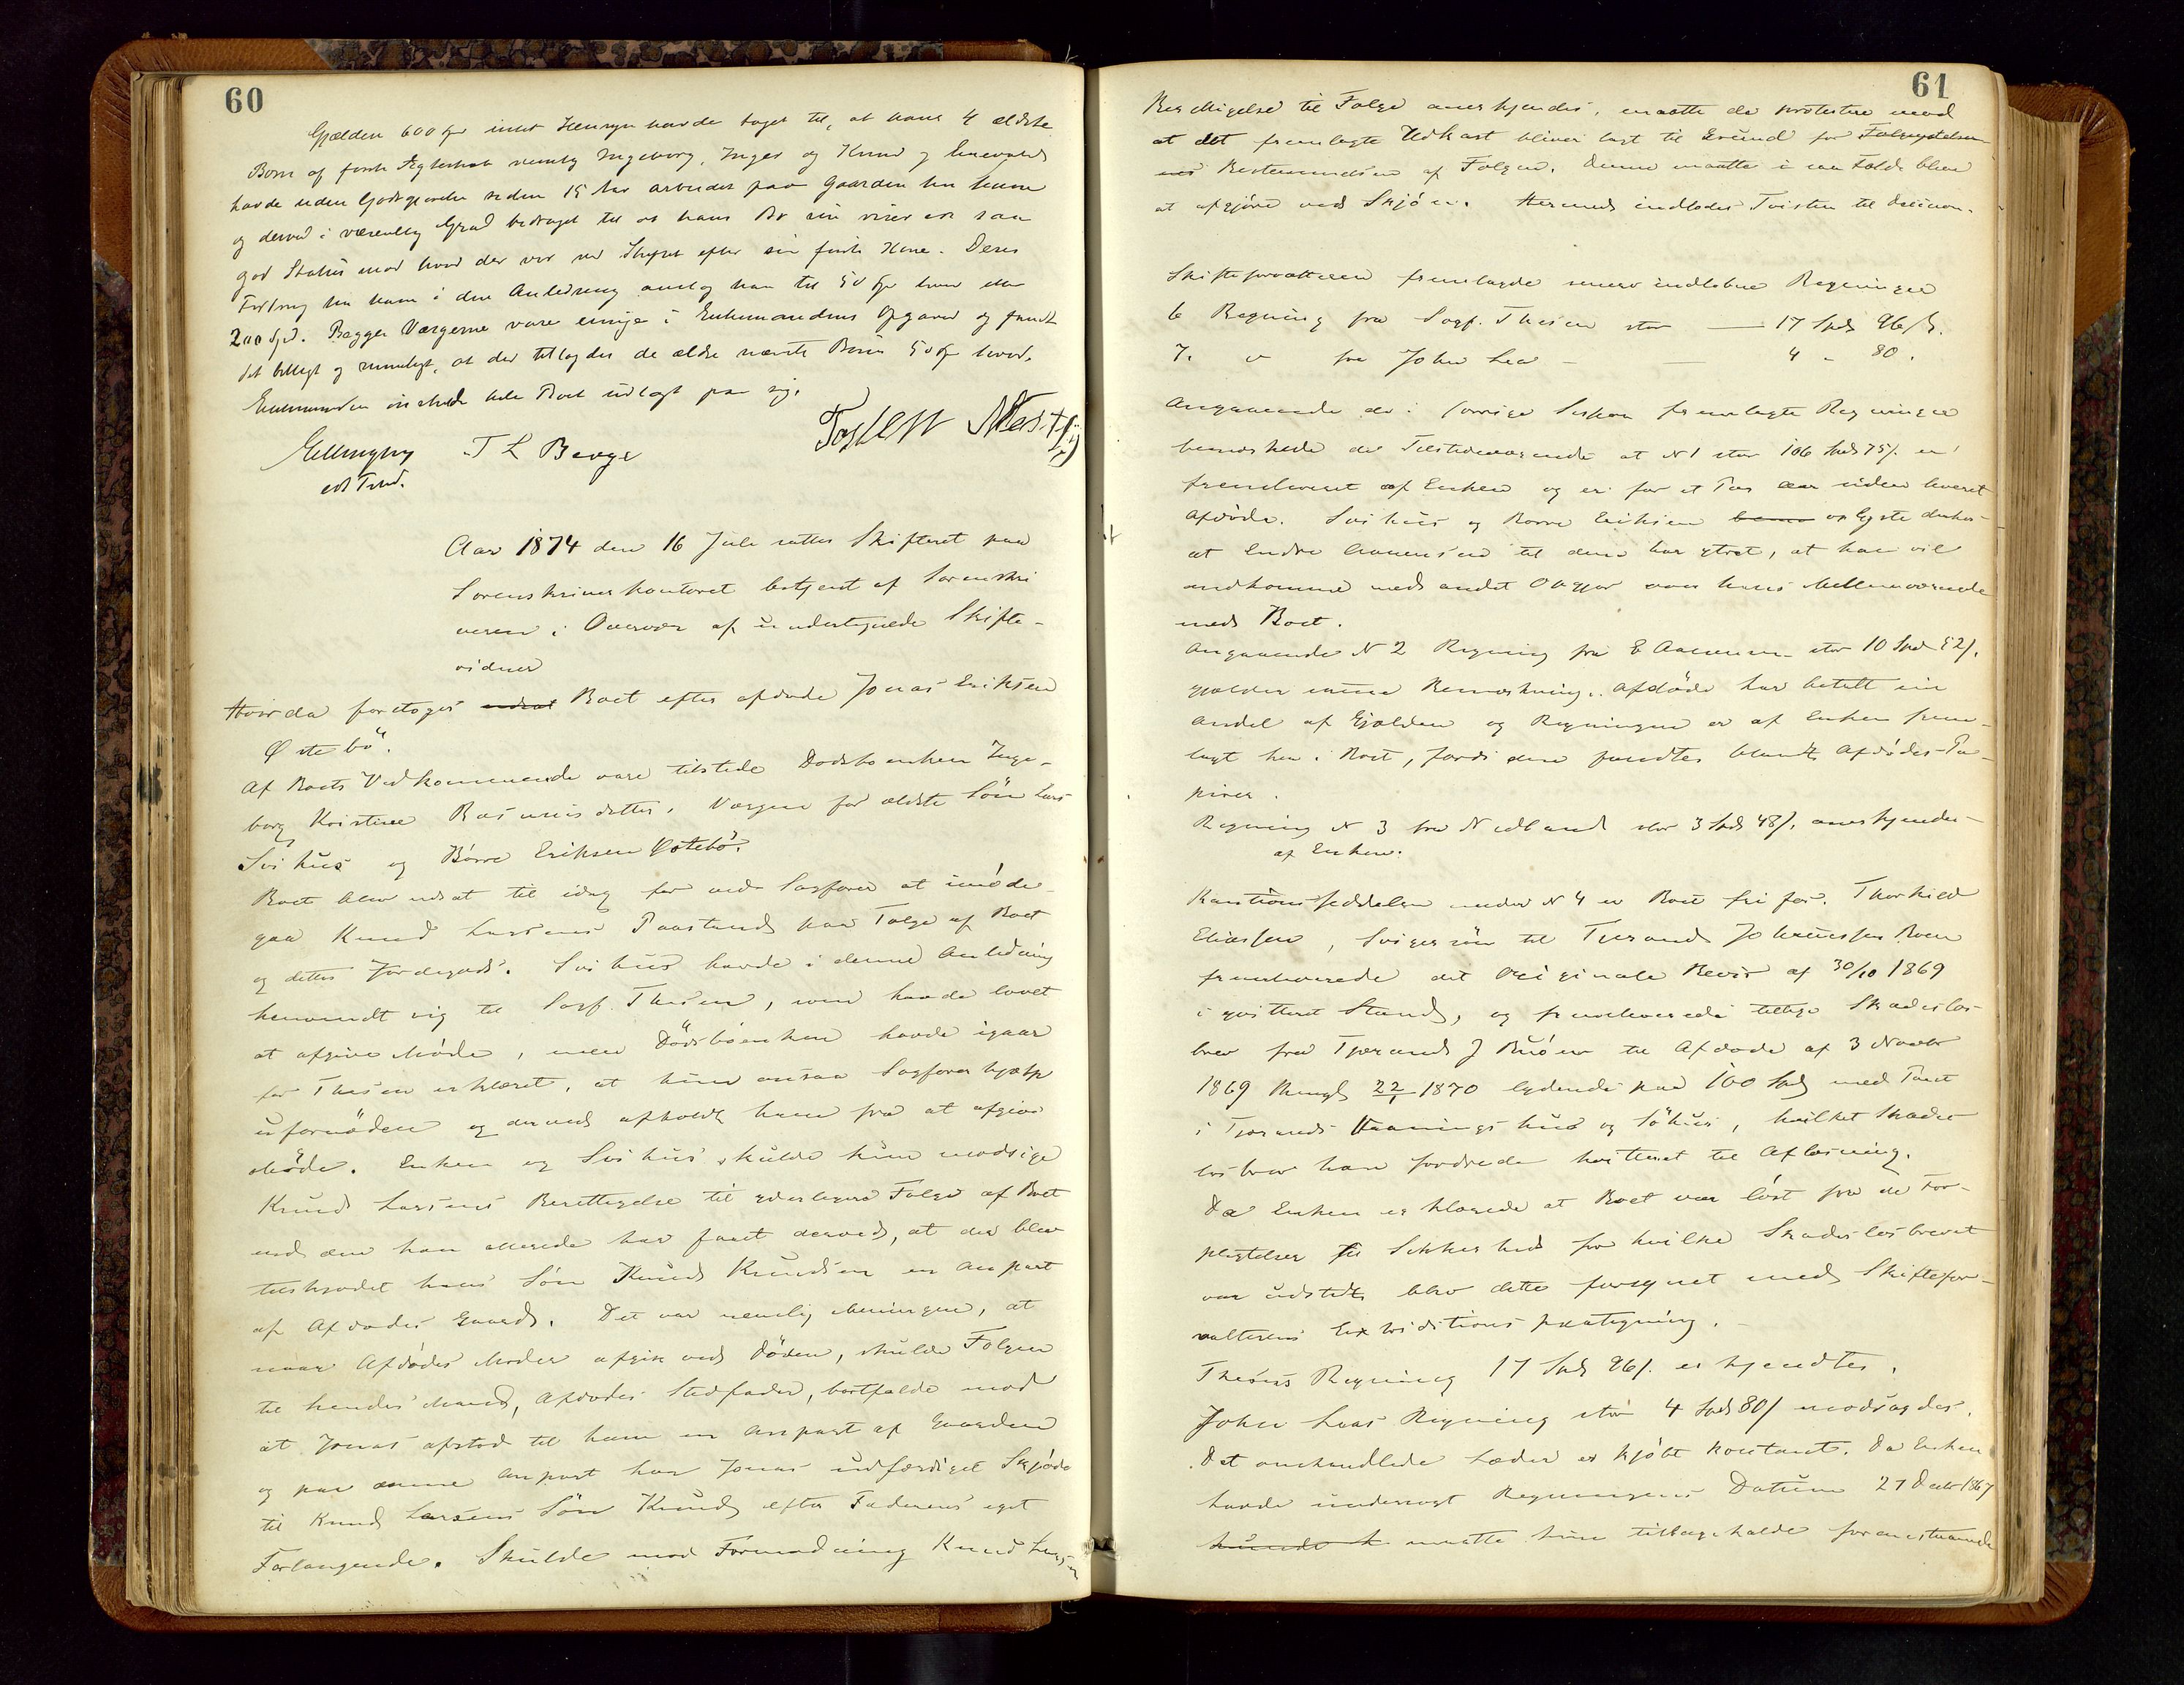 60
Gjælden 600 Spd intet Hensyn havde taget til, at hans 4 ældste
Børn af første Ægteskab nemlig Ingeborg, Inger og Knud og
havde uden Godtgjørelse siden 15 Aar arbeidet paa Gaarden hos ham
og derved i væsentlig Grad bidraget til at hans Bo nu viser en saa
god Status mod hvad der var ved Skiftet efter sin første Kone. Deres
Fordring hos ham i den Anledning ansloge han til 50 Spd hver eller
200 Spd. Begge Værgerne vare enige i Enkemandens Opgave og fandt
det billigt og rimeligt, at der tillagdes de ældre nævnte Børn 50 Spd hver.
Enkemanden ønskede hele Boet udlagt paa sig.
T L Berge
Aar 1874 den 16 Juli sattes Skifteret paa
Sorenskriverkontoret betjent af Sorenskri
veren i Overvær af undertegnede Skifte-
vidner
Hvor da foretoges Boet efter afdøde Jonas Eriksen
Østebö.
Af Boets Vedkommende vare tilstede Dødsboenken Inge-
borg Kristine Rasmusdatter, Værgen for ældste Sön Lars
Svihus og Börre Eriksen Østebö.
Boet blev udsat til idag for ved Sagfører at imöde-
gaa Knud Larsens Paastand paa Folge af Boet
og dettes Jordegods. Svihus havde i denne Anledning
henvendt sig til Sagf. Thesen, som havde lovet
at afgive Möde, men Dödsböenken havde igaar
for Thesen erklæret, at hun ansaa Sagførerhjælp
ufornöden og derved afholdt ham fra at afgive
Möde. Enken og Svihus skulde kun modsige
Knud Larsens Berettigelse til yderligere Folge af Boet
end den han allerede har faaet derved, at der blev
tilskjødet hans Sön Knud Knudsen en Anpart
af Afdødes Gaard. Det var nemlig Meningen, at
naar Afdødes Moder afgik ved Döden, skulde Folgen
til hendes Mand, Afdødes Stedfader, bortfalde mod
at Jonas afstod til ham en Anpart af Gaarden
og paa denne Anpart har Jonas udfærdiget Skjøde
til Knud Larsens Sön Knud efter Faderens eget
Forlangende. Skulde mod Formodning Knud Larsens
61
Berettigelse til Folge anerkjendes, maatte de protestere mod
at det fremlagte Udkast bliver lagt til Grund for
Bestemmelsen af Folgen. Denne maatte i saa Fald blive
at afgjöre ved Skjön. Hermed indlodes Tvisten til Decision.
Skifteforvalteren fremlagde senere indløbne Regninger
6 Regning fra Sagf. Thesen stor — 17 Spd 96 ß.
7. " fra John Lea — — 4 " 80.
Angaaende de i forrige Session fremlagte Regninger
bemærkede de Tilstedeværende at N 1 stor 106 Spd 75 ß. er
fremleveret af Enken og er for et Par Aar siden leveret
Afdøde. Svihus og Börre Eriksen oplyste derhos
at Endre Aanensen til dem har ytret, at han vil
indkomme med andet Opgjør over hans Mellemværende
med Boet.
Angaaende N 2 Regning fra E Aanensen stor 10 Spd 52 ß.
gjælder samme Bemærkning. Afdöde har betalt sin
Andel af Gjælden og Regningen er af Enken frem-
lagt her i Boet, fordi den fandtes blandt Afdødes Pa-
pirer.
Regning N 3 fra Nedland stor 3 Spd 48 ß. anerkjendes
af Enken.
Kautionsseddelen under N 4 er Boet fri for. Thorkild
Eliassen, Svigersön til Tjerand Johnnessen Boen
fremleverede det Originale Bevis af 30/10 1869
i qvitteret Stand, og fremleverede tillige Skadeslös-
brev fra Tjerand J Buöen til Afdøde af 3 Novbr
1869 thingl 22/1 1870 lydende paa 100 Spd med Pant
i Tjerands Vaaningshus og Söhus, hvilket Skades
lösbrev han fordrede kvitteret til Aflæsning.
Da Enken erklærede at Boet var löst fra de For-
pligtelser til Sikkerhed for hvilke Skadeslösbrevet
var udstedt blev dette forsynet med Skiftefor-
valterens Extraditions paategning.
Thesens Regning 17 Spd 96 ß. erkjendtes.
John Leas Regning stor 4 Spd 80 ß modsagdes.
Det omhandlede Læder er kjöbt kontant. Da Enken
havde undersøgt Regningens Datum 27 Decbr 1867
maatte hun tilbageholde foranstaaende